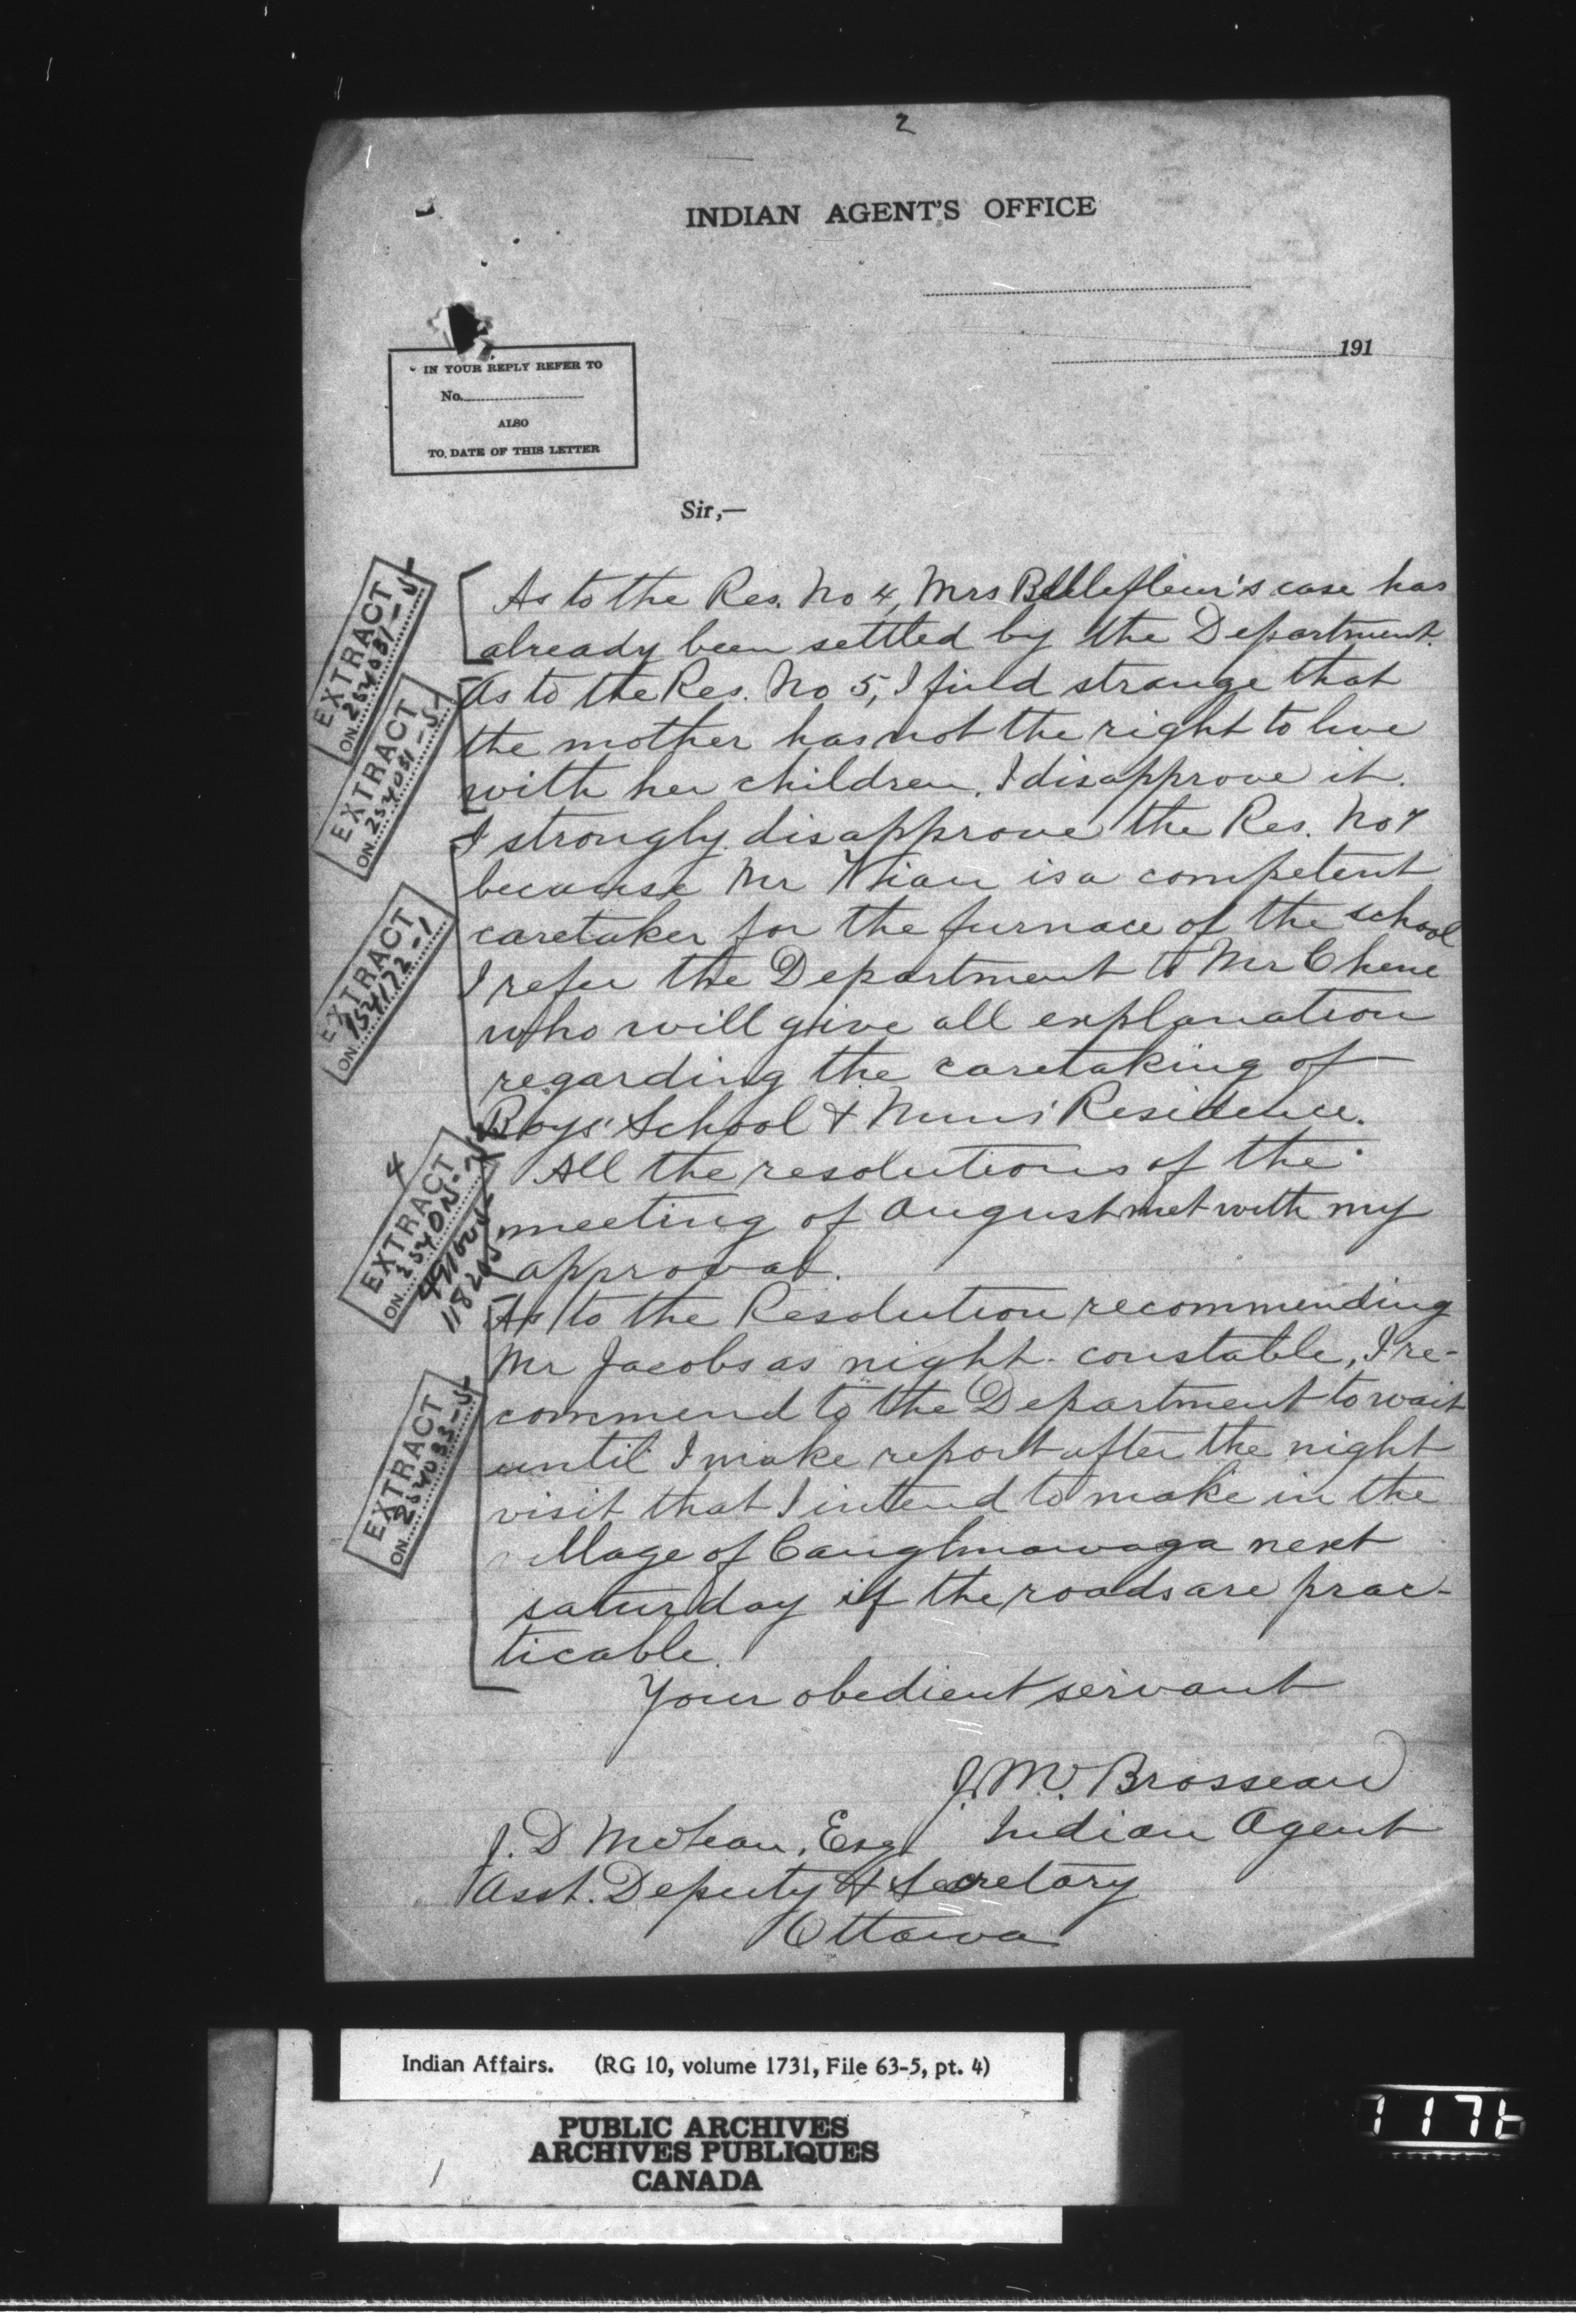 2
INDIAN AGENT'S OFFICE
191
IN YOUR REPLY REFER TO
No.
ALSO
TO DATE OF THIS LETTER
Sir,—
As to the Res. No 4, Mrs Bellefleur's case has
already been settled by the Department.
As to the Res. No 5, I find strange that
the mother has not the right to live
with her children. I disapprove it.
I strongly disapprove the Res. No 7
because Mr is a competent
caretaker for the furnace of the school
I refer the Department to Mr Chene
who will give all explanation
regarding the caretaking of
Boys' School & Nuns' Residence.
All the resolutions of the
meeting of August met with my
approval.
As to the Resolution recommending
Mr Jacobs as night constable, I re-
commend to the Department to wait
until I make report after the night
visit that I intend to make in the
village of Caughnawaga next
saturday if the roads are prac-
ticable.
Your obedient servant
Brosseau
Indian Agent
J. D McLean, Esq.
Asst. Deputy & Secretary
Ottawa
EXTRACT
ON 254031-5
EXTRACT
ON 254031-5
EXTRACT
ON 154172-1
4
EXTRACT
ON
EXTRACT
ON 254033-5
Indian Affairs. (RG 10, volume 1731, File 63-5, pt. 4)
PUBLIC ARCHIVES
ARCHIVES PUBLIQUES
CANADA